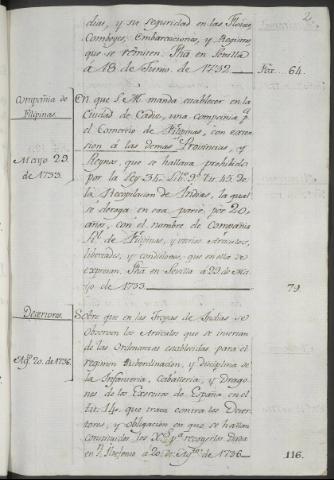 2
dias, y su seguridad en las Flotas,
Comboyes, Embarcaciones, y Registros
que se remiten. Fha en Sevilla
á 18. de Junio de 1732. Fox. 64.
Compañia de
Filipinas.
Mayo 29.
de 1733.
En que S. M. manda establecer en la
Ciudad de Cadiz, una compañia pª
el Comercio de Filipinas, con exten
sion á las demas Provincias, y
Reynos, que se hallava prohibido
por la Ley 34. Libº. 9º tit. 45. de
la Recopilacion de Indias, la qual
se deroga en esa parte, por 20
años, con el nombre de Compañia
Rl. de Filipinas, y varios Articulos,
libertades, y condiciones, que en ella se
expresan. Fha en Sevilla á 29. de Ma
yo de 1733. 79.
Desertores.
Agto. 20. de 1736.
Sobre que en las Tropas de Indias se
observen los Articulos que se insertan
de las Ordenanzas establecidas para el
regimen subordinacion, y disciplina de
la Infanteria, Caballeria, y Drago
nes de los Exercitos de España en el
tit. 14. que trata contra los Deser
tores, y obligacion en que se hallan
constituidas las pª recogerlos. Dada
en Sn. Ildefonso á 20. de Agto. de 1736. 116.